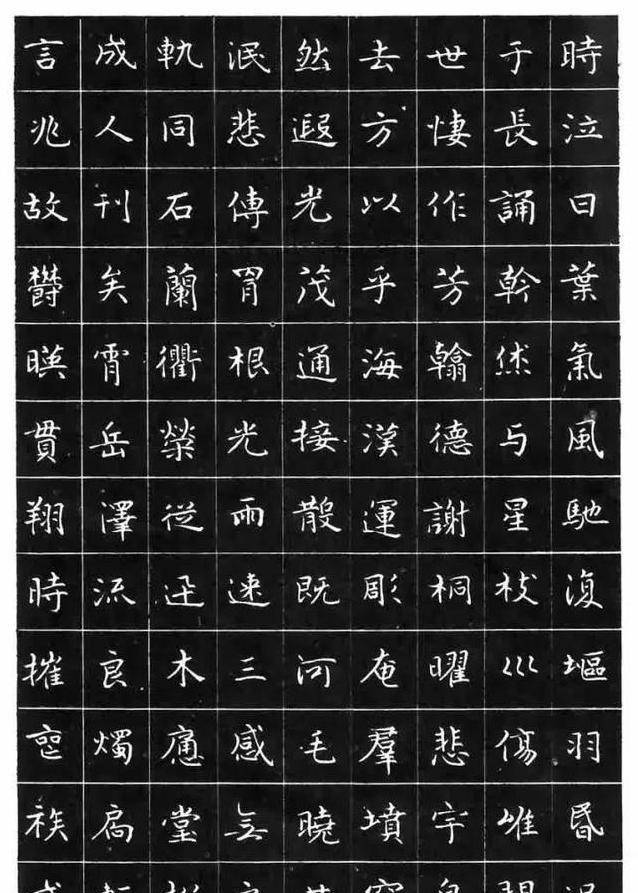 言成軌泯然去世于時
兆人同悲遐方悽長泣
故刊石傳光以作誦曰
欝矣蘭胄茂乎芳幹葉
暎霄衢根通海翰烋氣
貫岳榮光接漢德与風
翔澤從雨散運謝星馳
時流迅速既彫桐枝復
摧良木三河奄曜巛塸
燭痛感毛羣悲傷羽
族扃堂無曉墳宇唯昏